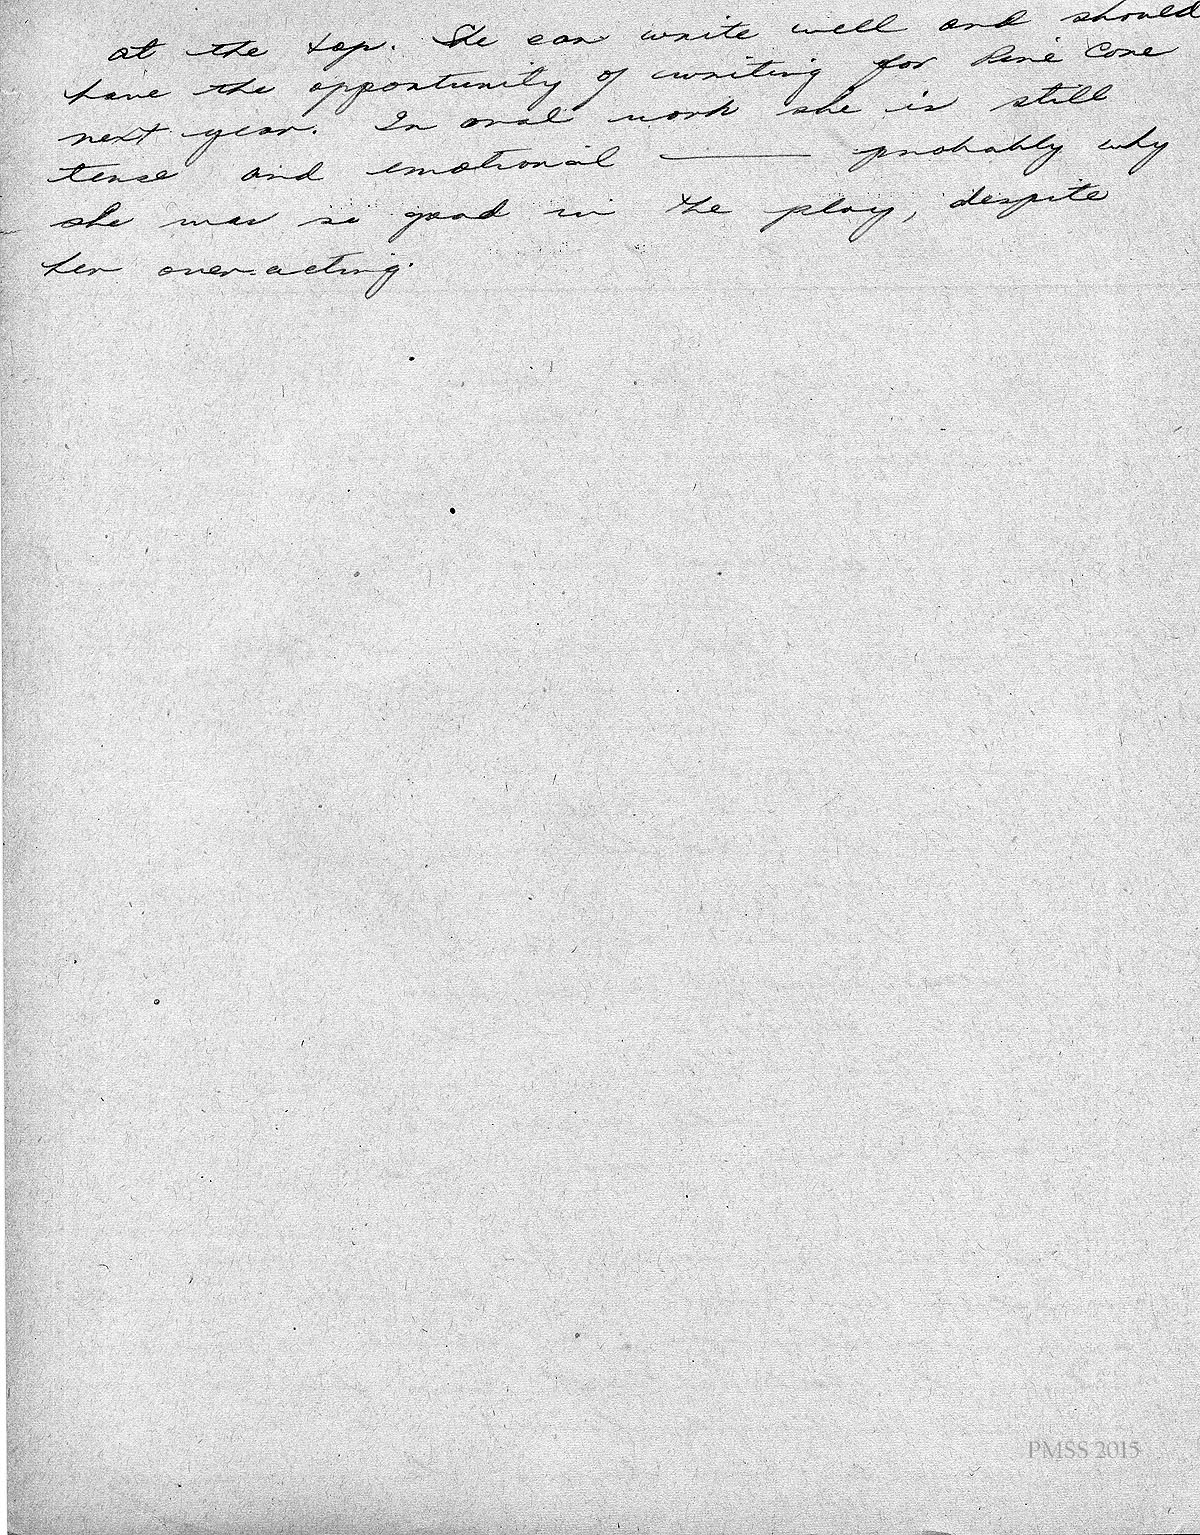 at the top. She can write well and should
have the opportunity of writing for Pine Cone
next year. In oral work she is still
tense and emotional — probably why
she was so good in the play, despite
her over-acting.
PMSS 2015